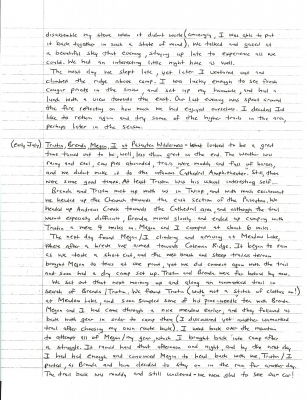 disassemble my stove when it didn't work (amazingly, I was able to put
it back together in such a state of mind). We talked and gazed at
a beautiful sky that evening, staying up late to experience all we
could. We had an interesting little night hike as well.
The next day we slept late, yet later I ventured out and
climbed the ridge above camp. I was lucky enough to see fresh
cougar prints in the snow, and set up my hammock, and had a
lunch with a view towards the east. Our last evening was spent around
the fire reflecting on how much we had enjoyed ourselves. I decided I'd
like to return again and dry some of the higher trails in the area,
perhaps later in the season.
(early July) Trista, Brenda, Megan, I at Pasayten Wilderness - What looked to be a great
time turned out to be, well, less than great in the end. The weather was
rainy and cool, campers abounded, trails were muddy and full of horses,
and we didn't make it to the infamous Cathedral Amphitheater. Still, there
were some good times. At least Trista was his usual interesting self...
Brenda and Trista met up with us in Twisp, and with much excitement
we headed up the Chewuch towards the east section of the Pasayten. We
headed up Andrews Creek towards the Cathedral area, and although the trail
wasn't especially difficult, Brenda moved slowly and ended up camping with
Trista a mere 4 miles in. Megan and I camped at about 6 miles.
The next day found Megan/I climbing and arriving at Meadow Lake,
where after a break we aimed towards Coleman Ridge. It began to rain
as we took a short cut, and the rock break and steep terrain
brought Megan to tears at one point, yet we did connect again with the trail
and soon had a dry camp set up. Trista and Brenda were far behind by now.
We set out that next morning up and along an unmarked trail in
search of Brenda/Trista. We found Trista (with not a stitch of clothes on!)
at Meadow Lake, and soon sampled some of his pine-needle tea with Brenda.
Megan and I had come through a nice meadow earlier, and they followed us
back with gear in order to camp there (I discovered yet another unmarked
trail after choosing my own route back). I went back over the mountain
to attempt all of Megan/my gear, which I brought back into camp after
a struggle. It rained hard that afternoon and night, and by the next day
I had had enough and convinced Megan to head back with me. Trista/I
parted, as Brenda and him decided to stay on in the rain for another day.
The trail back was muddy and still windblown - we were glad to see our car!